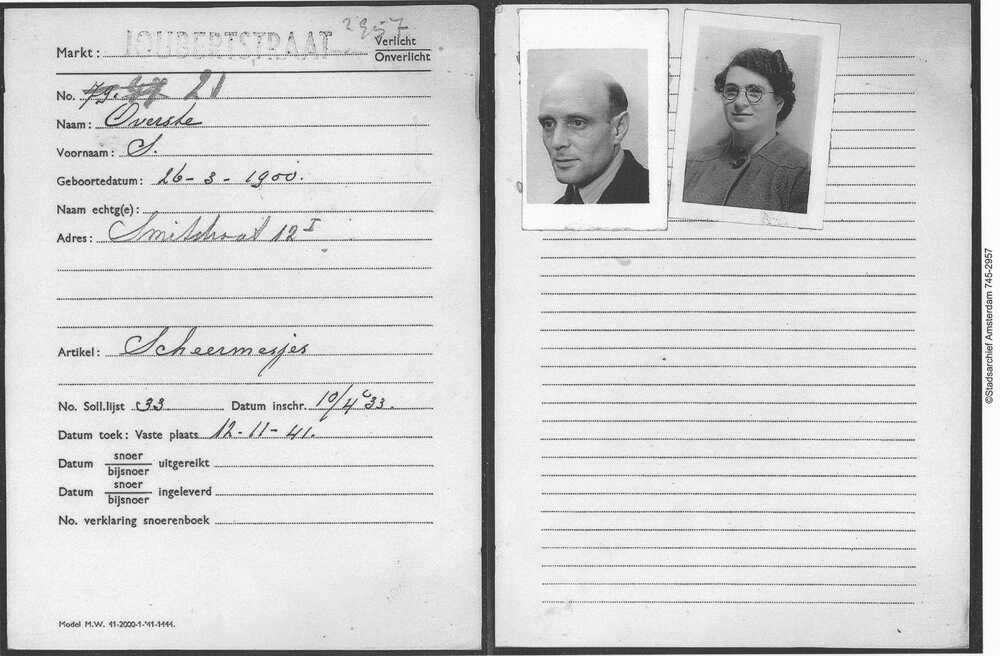 Markt: JOUBERTSTRAAT Verlicht
Onverlicht
No. 21
Naam: Overste
Voornaam: S.
Geboortedatum: 26-3-1900.
Naam echtg(e):
Adres: Smitstraat 12 I
Artikel: Scheermesjes
No. Soll.lijst 33 Datum inschr. 10/4 '33.
Datum toek: Vaste plaats 12-11-41.
Datum snoer bijsnoer uitgereikt
Datum snoer bijsnoer ingeleverd
No. verklaring snoerenboek
Model M.W. 41-2000-1-'41-1444.
©Stadsarchief Amsterdam 745-2957